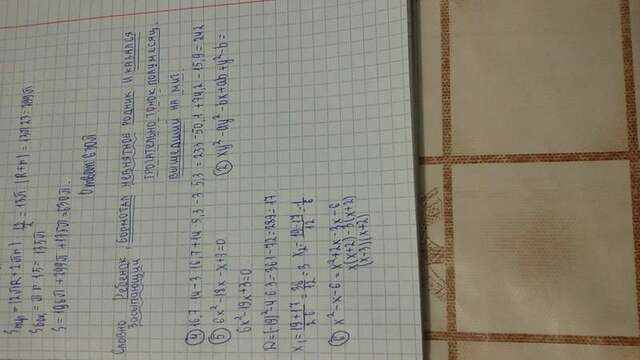 Sпир=(2πR+2πr) · 13/2 = 13π (R+r)=13π·23=299π
Sбок = π r · 15 = 135π
S=196π + 299π + 135π=630π.
Ответ: 630π
Словно Ребенок засыпающий, бормотал невнятное родник и казался
трогательно тонок полумесяц,
вышедший на миг.
④ 16,7 · 14 - 3 · 16,7 + 14 · 5,3 - 3 · 5,3 = 233 - 50,1 + 74,2 - 15,9 = 242
⑤ 6x²-18x-x+3=0 ② xy²-ay²-bx+ab+y²-b=
6x²-19x+3=0
D=(-19)²-4·6·3=361-72=289=17
x₁=19+17/2·6=36/12=3 x₂=19-17/12=1/6
⑥ x²-x-6=x²+2x-3x-6
x(x+2)-3(x+2)
(x-3)(x+2)